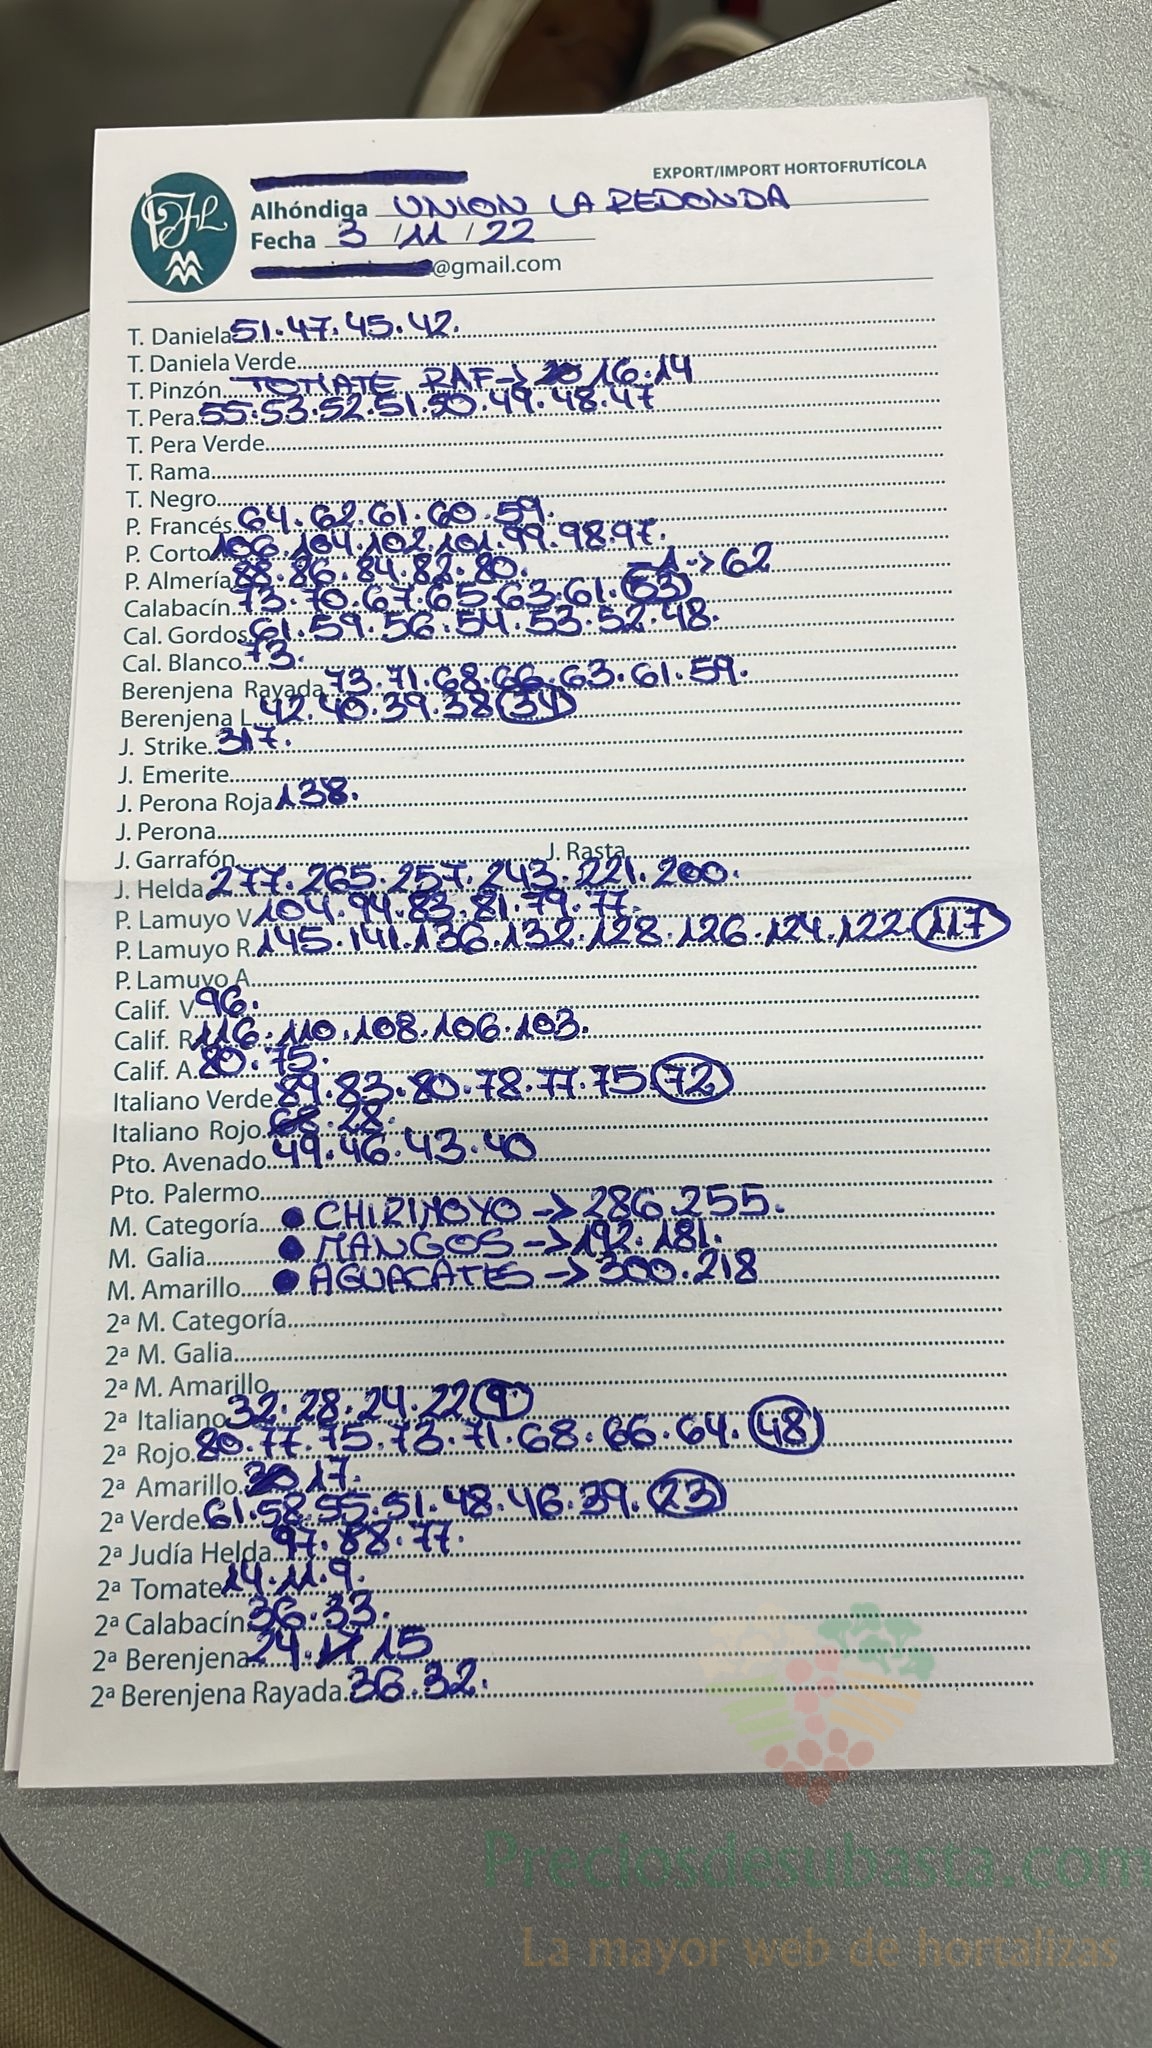 EXPORT/IMPORT HORTOFRUTÍCOLA
Alhóndiga UNION LA REDONDA
Fecha 3 / 11 / 22
@gmail.com
T. Daniela 51.47.45.42.
T. Daniela Verde
T. Pinzón TOMATE RAF-> 16.14
T. Pera 55.53.52.51.50.49.48.47
T. Pera Verde
T. Rama
T. Negro
P. Francés 64.62.61.60.59.
P. Corto 106.104.102.101.99.98.97.
P. Almería 88.86.84.82.80. -1->62
Calabacín 73.70.67.65.63.61.53
Cal. Gordos 61.59.56.54.53.52.48.
Cal. Blanco 73.
Berenjena Rayada 73.71.68.66.63.61.59.
Berenjena L. 42.40.39.38 34
J. Strike 317.
J. Emerite
J. Perona Roja 138.
J. Perona
J. Garrafón J. Rasta
J. Helda 277.265.257.243.221.200.
P. Lamuyo V. 104.94.83.81.79.77.
P. Lamuyo R. 145.141.136.132.128.126.124.122.117
P. Lamuyo A.
Calif. V. 96.
Calif. R. 116.110.108.106.103.
Calif. A. 80.75.
Italiano Verde 89.83.80.78.77.75 72
Italiano Rojo 28.
Pto. Avenado 49.46.43.40
Pto. Palermo
M. Categoría ● CHIRIMOYO -> 286.255.
M. Galia ● MANGOS -> 192.181.
M. Amarillo ● AGUACATES -> 300.218
2ª M. Categoría
2ª M. Galia
2ª M. Amarillo
2ª Italiano 32.28.24.22 9
2ª Rojo 80.77.75.73.71.68.66.64.48
2ª Amarillo 17.
2ª Verde 61.58.55.51.48.46.39.23
2ª Judía Helda 97.88.77.
2ª Tomate 14.11.9.
2ª Calabacín 36.33.
2ª Berenjena 24. 15
2ª Berenjena Rayada 36.32.
Preciosdesubasta.com
La mayor web de hortalizas